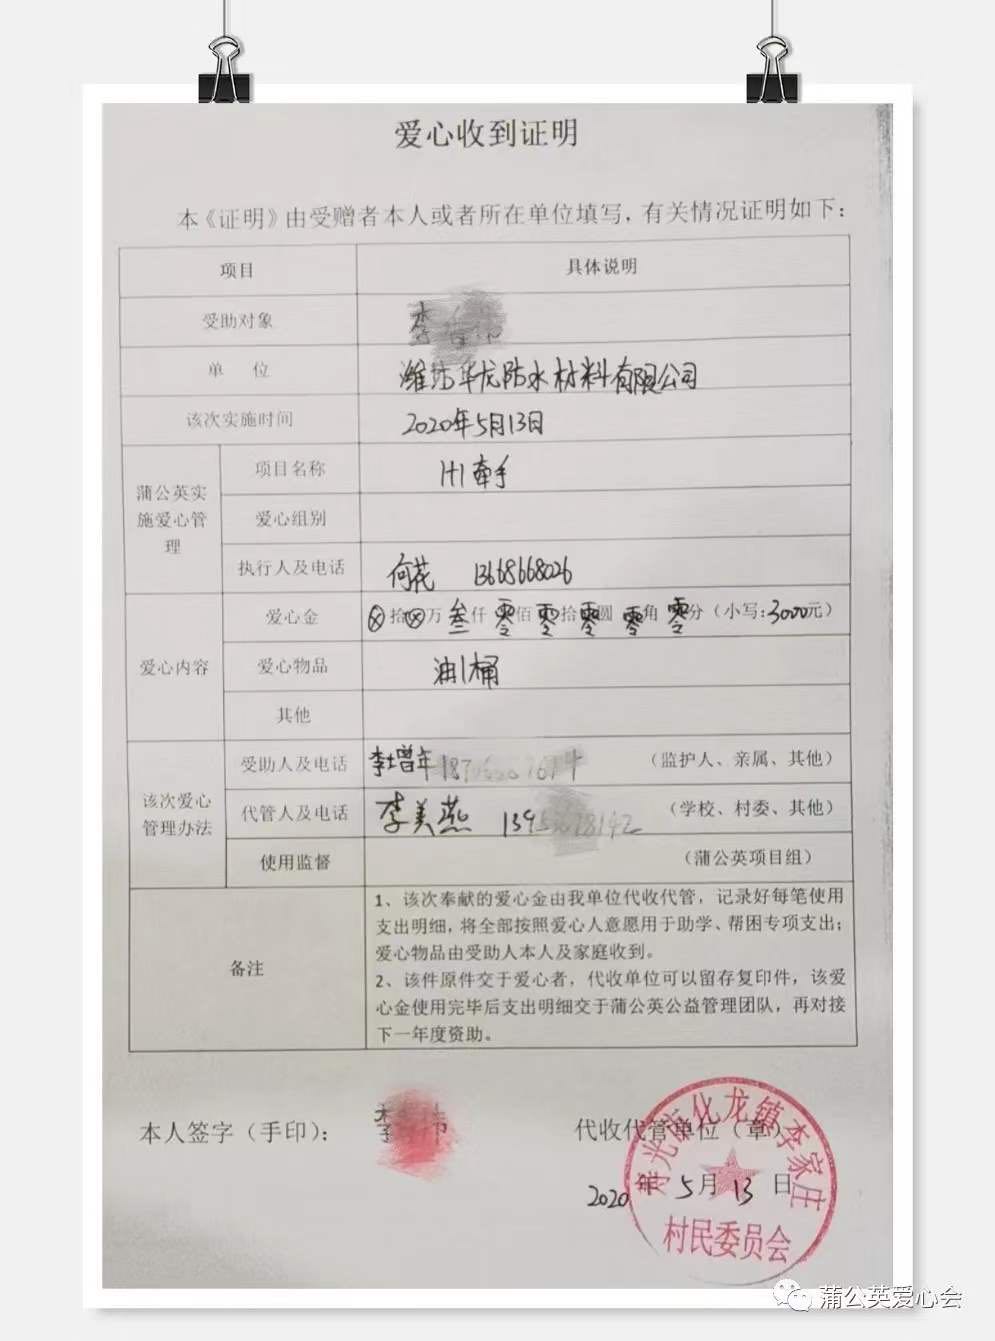 爱心收到证明
本《证明》由受赠者本人或者所在单位填写，有关情况证明如下：
项目 具体说明
受助对象 李
单 位 潍坊华龙防水材料有限公司
该次实施时间 2020年5月13日
蒲公英实施爱心管理
项目名称 1+1牵手
爱心组别
执行人及电话 何花 13668668026
爱心内容
爱心金 ⊗拾⊗万叁仟零佰零拾零圆零角零分（小写：3000元）
爱心物品 油1桶
其他
该次爱心管理办法
受助人及电话 李增年 （监护人、亲属、其他）
代管人及电话 李美燕 （学校、村委、其他）
使用监督 （蒲公英项目组）
备注
1、该次奉献的爱心金由我单位代收代管，记录好每笔使用
支出明细，将全部按照爱心人意愿用于助学、帮困专项支出；
爱心物品由受助人本人及家庭收到。
2、该件原件交于爱心者，代收单位可以留存复印件，该爱
心金使用完毕后支出明细交于蒲公英公益管理团队，再对接
下一年度资助。
本人签字（手印）： 李
代收代管单位（章）
2020年5月13日
寿光市化龙镇李家庄
村民委员会
蒲公英爱心会